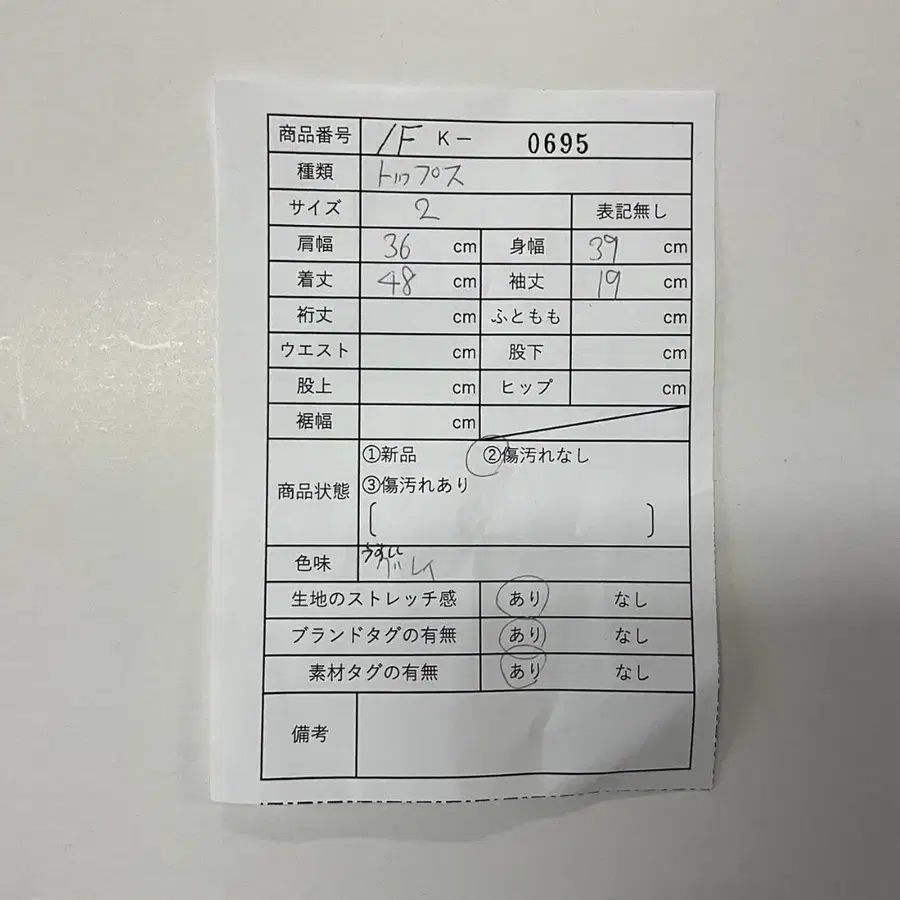 商品番号 /F K- 0695
種類 トップス
サイズ 2 表記無し
肩幅 36 cm 身幅 39 cm
着丈 48 cm 袖丈 19 cm
裄丈 cm ふともも cm
ウエスト cm 股下 cm
股上 cm ヒップ cm
裾幅 cm
①新品 ②傷汚れなし
商品状態 ③傷汚れあり
[ ]
色味 うすい グレイ
生地のストレッチ感 あり なし
ブランドタグの有無 あり なし
素材タグの有無 あり なし
備考